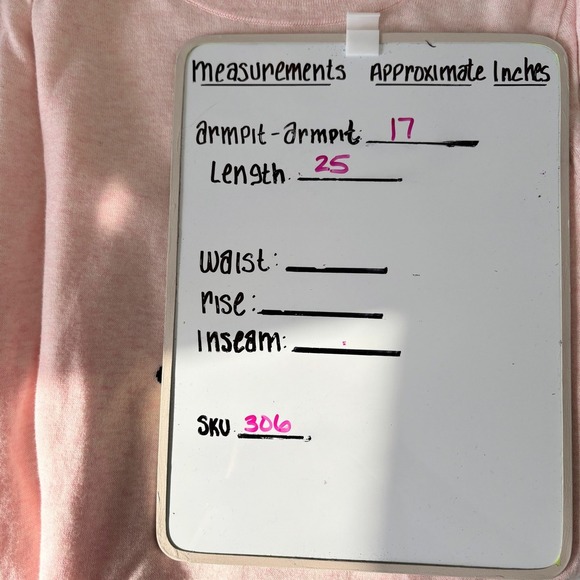 measurements Approximate Inches
armpit-armpit: 17
Length 25
waist:
rise:
Inseam:
SKU 306